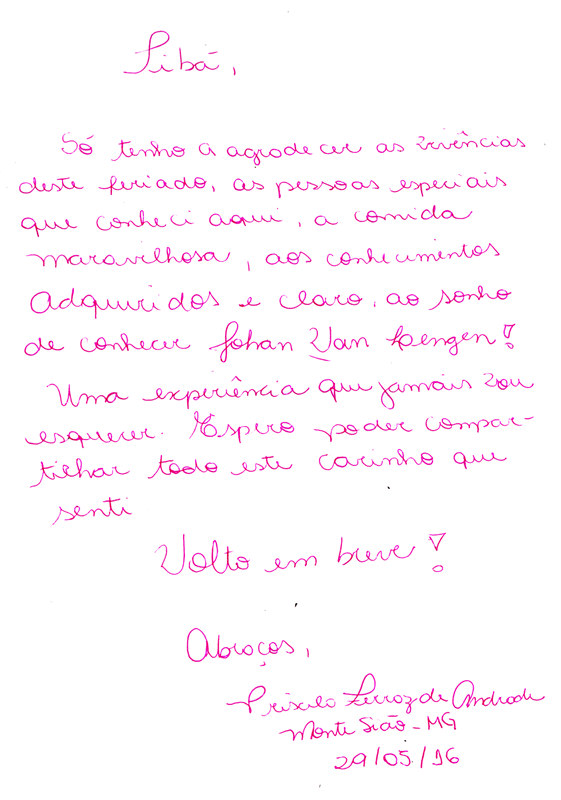 Tibá,
Só tenho a agradecer as vivências
deste feriado, as pessoas especiais
que conheci aqui, a comida
maravilhosa, aos conhecimentos
adquiridos e claro, ao sonho
de conhecer Johan Van Lengen!
Uma experiência que jamais vou
esquecer. Espero poder compar-
tilhar todo este carinho que
senti
Volto em breve!
Abraços,
Priscila Ferraz de Andrade
Monte Sião - MG
29/05/16